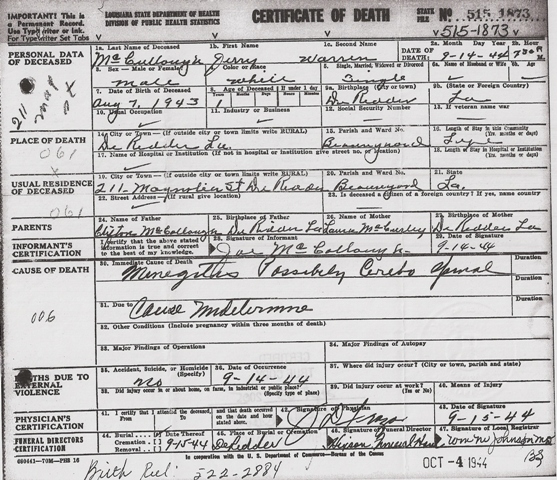 IMPORTANT! This is a Permanent Record. Use Typewriter or Ink. For Typewriter Set Tabs
LOUISIANA STATE DEPARTMENT OF HEALTH
DIVISION OF PUBLIC HEALTH STATISTICS
CERTIFICATE OF DEATH
STATE FILE No. 515-1873
515-1873
PERSONAL DATA OF DECEASED
1a. Last Name of Deceased 1b. First Name 1c. Second Name DATE OF DEATH 2a. Month Day Year 2b. Hour
McCullough Jerry Warren 9-14-44 7:30 PM
Color or Race 5. Single, Married, Widowed or Divorced 6a. Name of Husband or Wife
male white Single
7. Date of Birth of Deceased 8. Age of Deceased If under 1 day 9a. Birthplace (City or town) 9b. (State or Foreign Country)
Aug 7, 1943 1 De Ridder La
10. Usual Occupation 11. Industry or Business 12. Social Security Number 13. If veteran name war
PLACE OF DEATH
14. City or Town—(If outside city or town limits write RURAL) 15. Parish and Ward No. 16. Length of Stay in this Community (Yrs. months or days)
De Ridder La. Beauregard Life
17. Name of Hospital or Institution (If not in hospital or institution give street no. or location) 18. Length of Stay in Hosp. or Institution (Yrs. months or days)
061
USUAL RESIDENCE OF DECEASED
19. City or Town—(If outside city or town limits write RURAL) 20. Parish and Ward No. 21. State
211 Magnolia St De Ridder Beauregard La.
22. Street Address—(If rural give location) 23. Is deceased a citizen of a foreign country? If yes, name country
061
PARENTS
24. Name of Father 25. Birthplace of Father 26. Name of Mother 27. Birthplace of Mother
McCollough De Ridder La De Ridder La
INFORMANT'S CERTIFICATION
I certify that the above stated information is true and correct to the best of my knowledge.
28. Signature of Informant 29. Date of Signature
9-14-44
CAUSE OF DEATH
30. Immediate Cause of Death Duration
Possibely Cerebo Spinal
31. Due to Duration
Cause
006
32. Other Conditions (Include pregnancy within three months of death) Duration
33. Major Findings of Operations 34. Major Findings of Autopsy
DEATHS DUE TO EXTERNAL VIOLENCE
35. Accident, Suicide, or Homicide (Specify) 36. Date of Occurrence 37. Where did injury occur? (City or town, parish and state)
No 9-14-44
38. Did injury occur in or about home, on farm, in industrial or public place? (Specify type of place) 39. Did injury occur at work? (Yes or No) 40. Means of Injury
PHYSICIAN'S CERTIFICATION
41. I certify that I attended the deceased, and that death occurred on the date and hour above stated. 42. Signature of Physician 43. Date of Signature
9-15-44
FUNERAL DIRECTORS CERTIFICATION
44. Burial Cremation Date Thereof 45. Place of Burial or Cremation 46. Signature of Funeral Director 47. Signature of Local Registrar
9-15-44 De Ridder Hixson Funeral Home Johnson MD
In cooperation with the U. S. Department of Commerce—Bureau of the Census
OCT -4 1944
522-2884